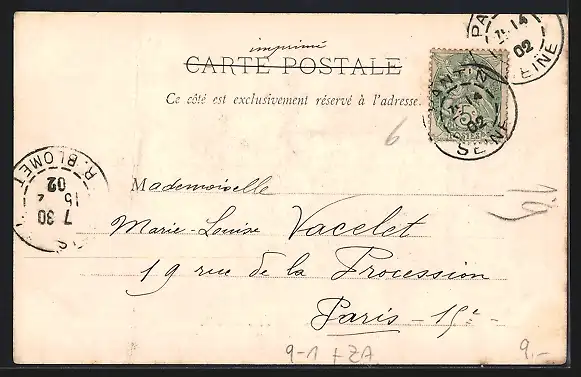 imprimé
CARTE POSTALE
Ce côté est exclusivement réservé à l'adresse.
PANTIN
14
02
SEINE
PA
14
02
SEINE
6
R. BLOMET
7 30
15
02
Mademoiselle
Marie-Louise Vacelet
19 rue de la Procession
Paris - 15e
9-1 + ZA
9.-